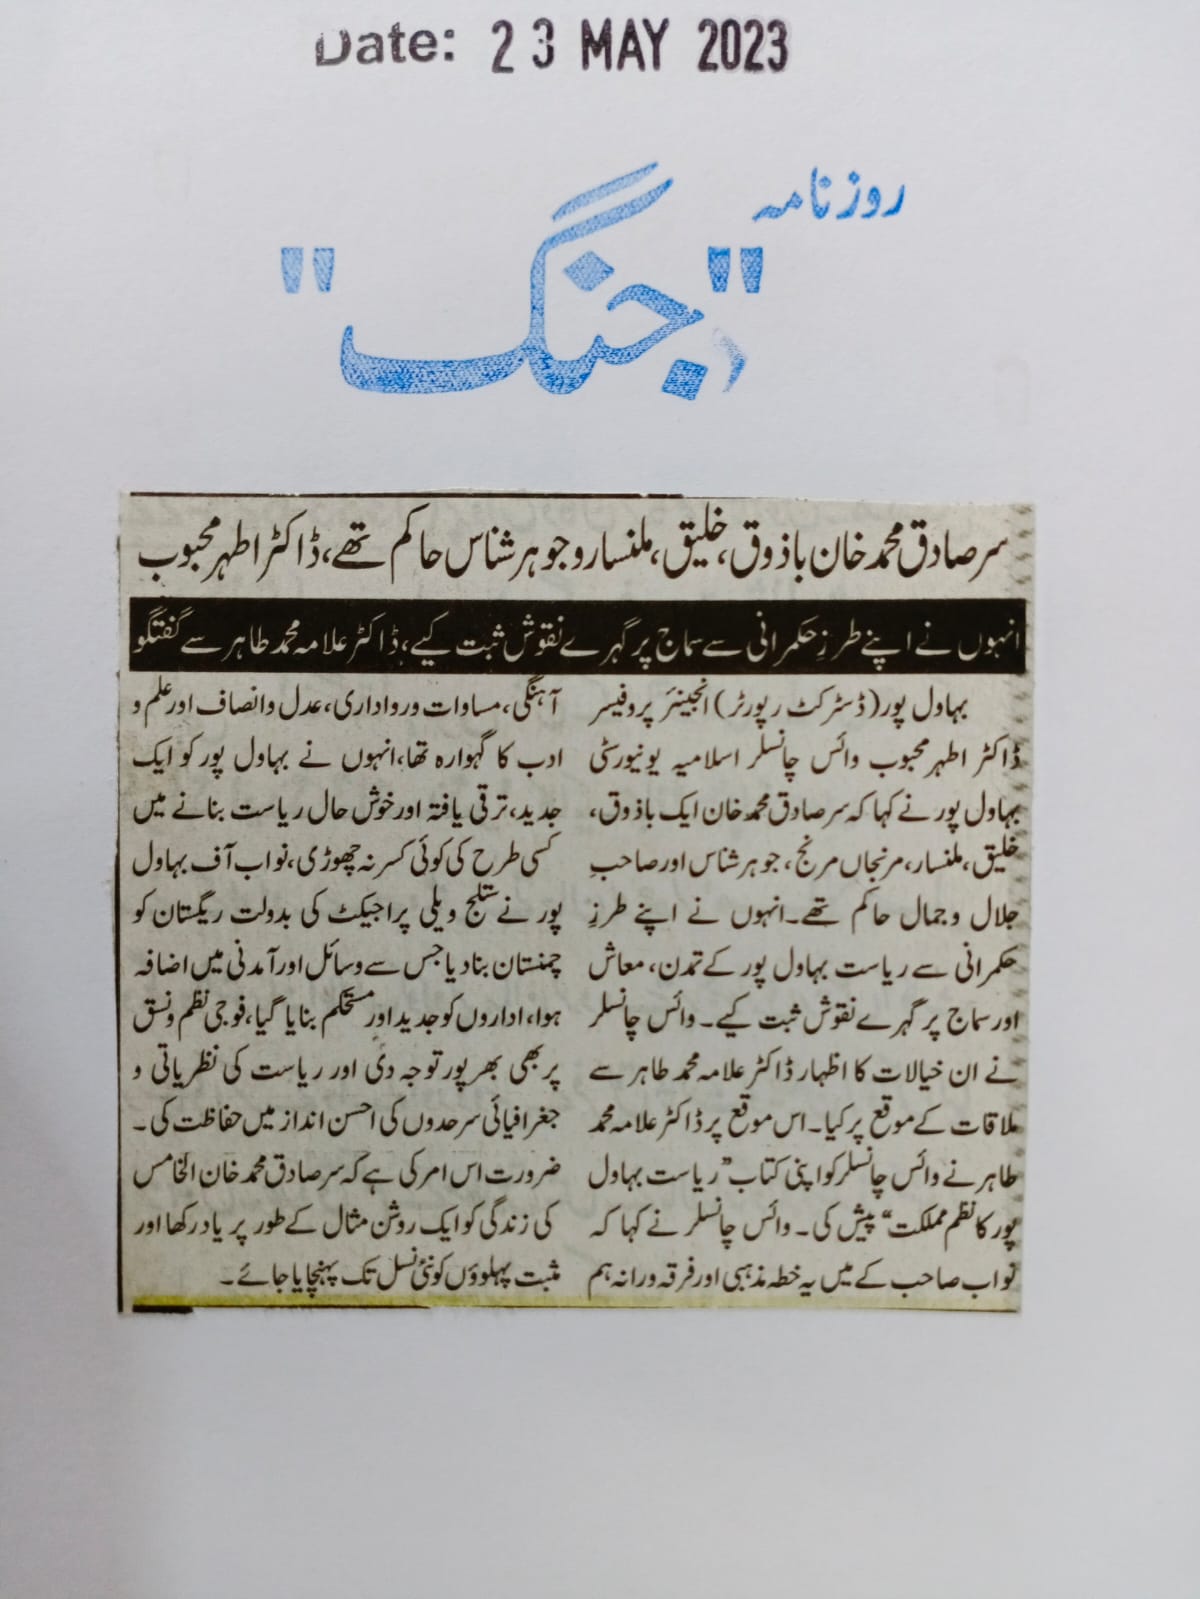 Date: 23 MAY 2023
روزنامہ
"جنگ"
سر صادق محمد خان باذوق، خلیق، ملنسار و جوہر شناس حاکم تھے، ڈاکٹر اطہر محبوب
انہوں نے اپنے طرزِ حکمرانی سے سماج پر گہرے نقوش ثبت کیے، ڈاکٹر علامہ محمد طاہر سے گفتگو
بہاول پور (ڈسٹرکٹ رپورٹر) انجینئر پروفیسر
ڈاکٹر اطہر محبوب وائس چانسلر اسلامیہ یونیورسٹی
بہاول پور نے کہا کہ سر صادق محمد خان ایک باذوق،
خلیق، ملنسار، مرنجاں مرنج، جوہر شناس اور صاحبِ
جلال و جمال حاکم تھے۔ انہوں نے اپنے طرزِ
حکمرانی سے ریاست بہاول پور کے تمدن، معاش
اور سماج پر گہرے نقوش ثبت کیے۔ وائس چانسلر
نے ان خیالات کا اظہار ڈاکٹر علامہ محمد طاہر سے
ملاقات کے موقع پر کیا۔ اس موقع پر ڈاکٹر علامہ محمد
طاہر نے وائس چانسلر کو اپنی کتاب ”ریاست بہاول
پور کا نظم مملکت“ پیش کی۔ وائس چانسلر نے کہا کہ
نواب صاحب کے میں یہ خطہ مذہبی اور فرقہ ورانہ ہم
آہنگی، مساوات و رواداری، عدل و انصاف اور علم و
ادب کا گہوارہ تھا، انہوں نے بہاول پور کو ایک
جدید، ترقی یافتہ اور خوش حال ریاست بنانے میں
کسی طرح کی کوئی کسر نہ چھوڑی، نواب آف بہاول
پور نے ستلج ویلی پراجیکٹ کی بدولت ریگستان کو
چمنستان بنا دیا جس سے وسائل اور آمدنی میں اضافہ
ہوا، اداروں کو جدید اور مستحکم بنایا گیا، فوجی نظم و نسق
پر بھی بھر پور توجہ دی اور ریاست کی نظریاتی و
جغرافیائی سرحدوں کی احسن انداز میں حفاظت کی۔
ضرورت اس امر کی ہے کہ سر صادق محمد خان الخامس
کی زندگی کو ایک روشن مثال کے طور پر یاد رکھا اور
مثبت پہلوؤں کو نئی نسل تک پہنچایا جائے۔